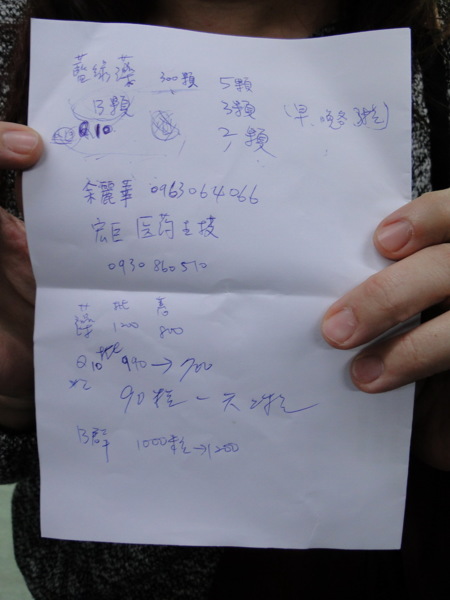 藍綠藻 300顆 5顆
B顆 3顆 (早、晚各3粒)
Q10 2顆
余麗華 0963064066
宏巨医药生技
0930 860510
藻 批 售
1200 800
Q10 批 990→700
90粒 一天2粒
B群 1000粒→1200